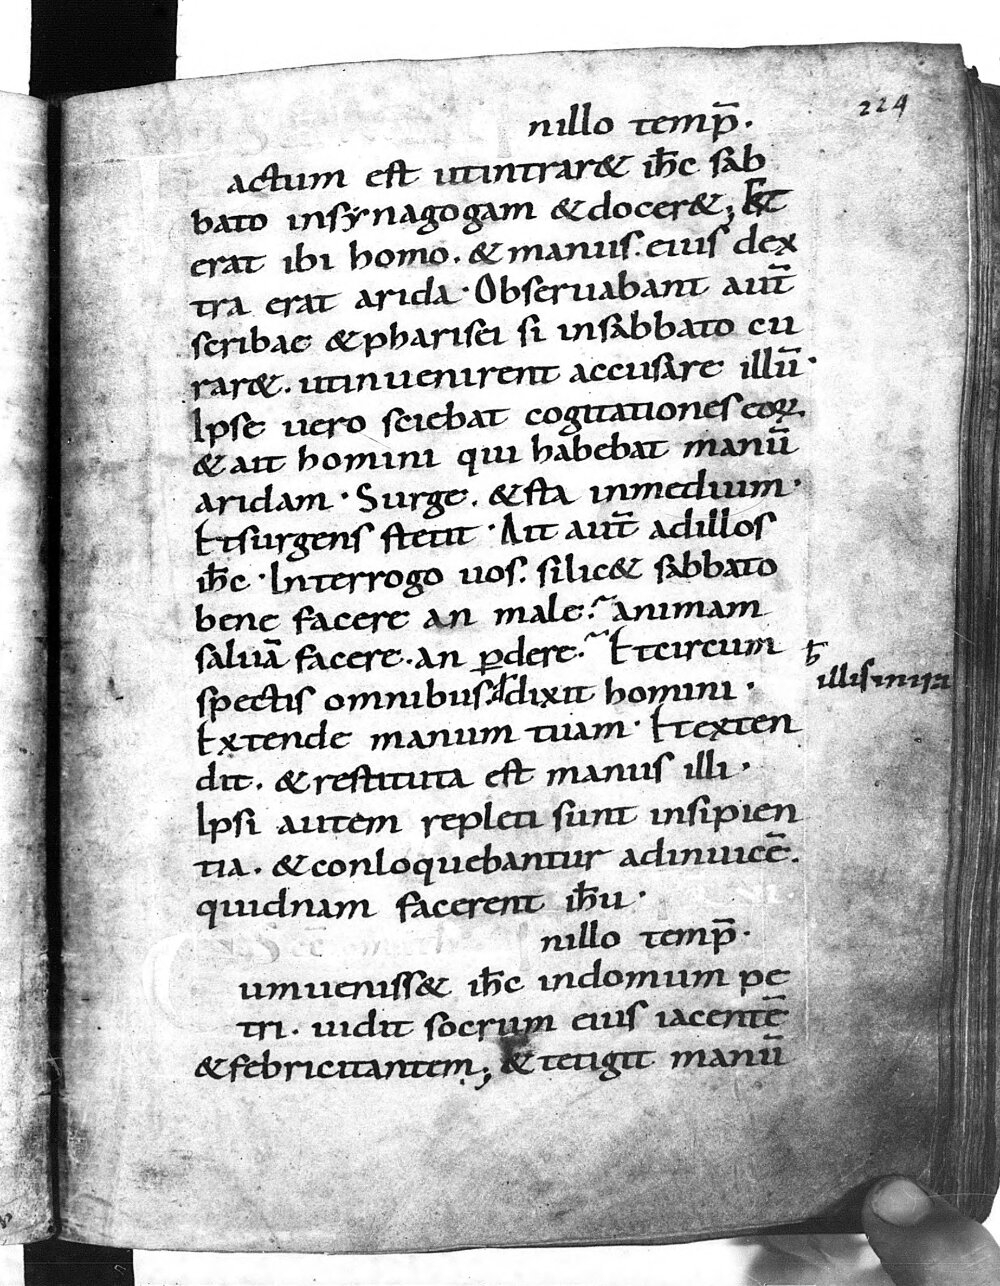 224
nillo temp̄.
actum est utintrar& ih̄c sab
bato insynagogam &docer&; Et
erat ibi homo. &manus. eius dex
tra erat arida· Obseruabant aut̄
scribae &pharisei si insabbato cu
rar&. utinuenirent accusare illū·
Ipse uero sciebat cogitationes eoꝝ.
&ait homini qui habebat manū
aridam· Surge. &sta inmedium·
Etsurgens stetit· Ait aut̄ adillos
ih̄c· Interrogo uos. silic& sabbato
bene facere an male? animam
saluā facere. an ꝑdere? Etcircum
spectis omnibus. dixit homini·
illisinira
Extende manum tuam· Etexten
dit. &restituta est manus illi·
Ipsi autem repleti sunt insipien
tia. &conloquebantur adinuicē.
quidnam facerent ih̄u·
nillo temp̄·
umueniss& ih̄c indomum pe
tri. uidit socrum eius iacentē
&febricitantem; &tetigit manū